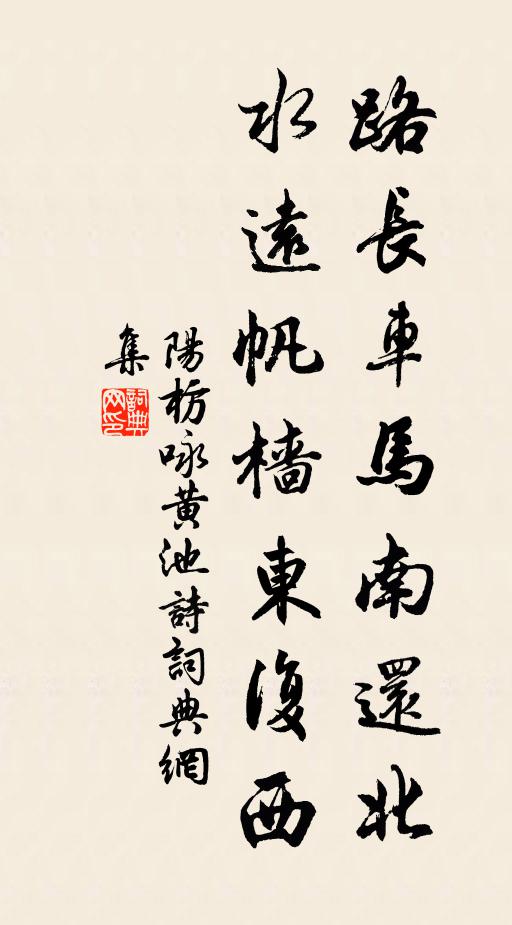 路長車馬南還北
水遠帆檣東復西
陽枋咏黃池詩詞典網
集
詞典網印